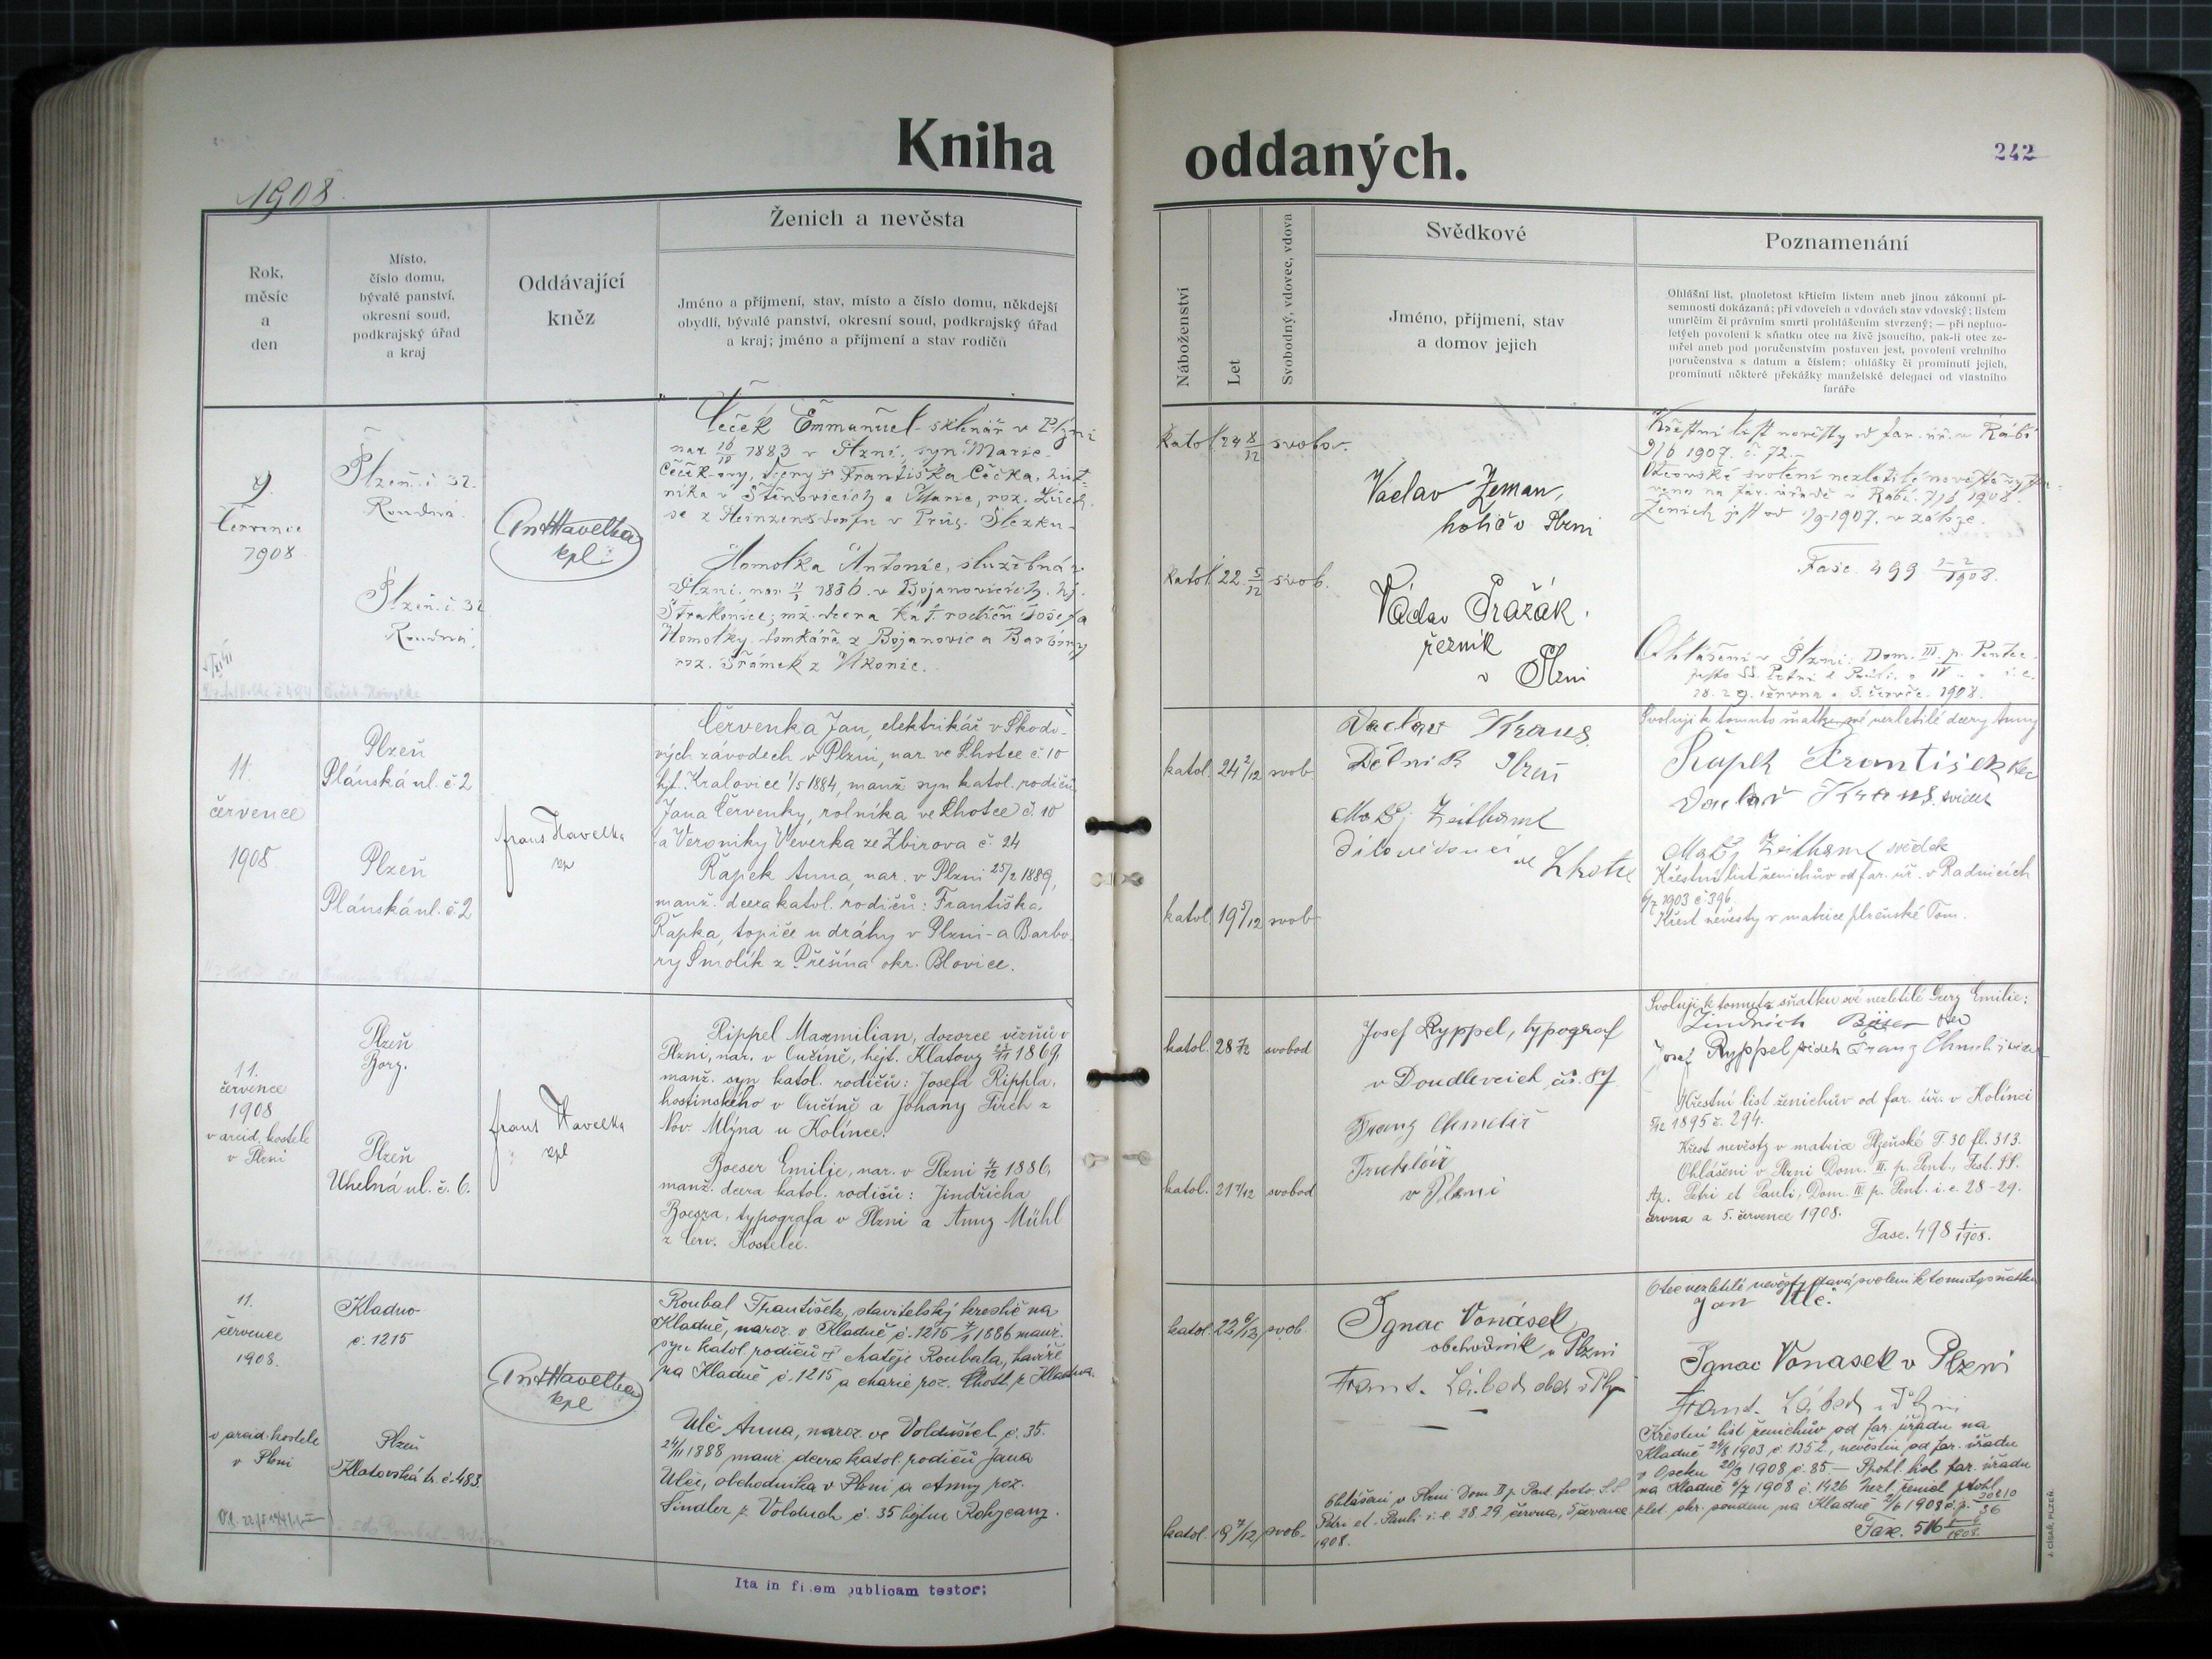 Kniha
oddaných.
242
1908.
Rok,
měsíc
a
den
Místo,
číslo domu,
bývalé panství,
okresní soud,
podkrajský úřad
a kraj
Oddávající
kněz
Ženich a nevěsta
Jméno a příjmení, stav, místo a číslo domu, někdejší
obydlí, bývalé panství, okresní soud, podkrajský úřad
a kraj; jméno a příjmení a stav rodičů
Náboženství
Let
Svobodný, vdovec, vdova
Svědkové
Jméno, příjmení, stav
a domov jejich
Poznamenání
Ohlášní list, plnoletost křticím listem aneb jinou zákonní pí-
semností dokázaná; při vdovcích a vdovách stav vdovský; listem
umrtčím či právním smrti prohlášením stvrzený; — při neplno-
letých povolení k sňatku otce na živě jsoucího, pak-li otec ze-
mřel aneb pod poručenstvím postaven jest, povolení vrchního
poručenstva s datum a číslem; ohlášky či prominutí jejich,
prominutí některé překážky manželské delegací od vlastního
faráře
9.
července
1908
Plzeň. č 32.
Roudná.
Plzeň. č. 32
Roudná.
Ant Havelka
kpl.
Čečák Emmanuel - sklenář v Plzni
nar. 1883 v Plzni, syn Marie
nika v Štěnovicích a Marie, roz.
se z Heinzendorfu v Prus. Slezku.
Homolka Antonie, služebná v
Plzni, nar. 1886. v Bojanovicích. hj.
Strakonice; mž. dcera kat. rodičů Josefa
Homolky domkáře z Bojanovic a Barbory
roz. Šrámek z
katol. 24 8/12 svobod.
katol. 22. 5/12 svob.
Václav Zeman,
holič v Plzni
Václav Pražák.
řezník
v Plzni
Křestní list nevěsty od far. úř. v Rábí
9/6 1907. č. 72.
Otcovské svolení nezletilé nevěstě
na far. úřadě v Rabí. 7/6 1908.
Ženich jest od 1/9 1907. v záloze.
Fasc. 499 2-2/1908.
Ohlášeni v Plzni: Dom. III. p. Pentec.
festo SS. Petri et Pauli.
28. 29. června a 5. července. 1908.
11.
července
1908
Plzeň
Plánská ul. č 2
Plzeň
Plánská ul. č. 2
Havelka
Červenka Jan, elektrikář v Škodo-
vých závodech v Plzni, nar. ve Lhotce č. 10
hjt. Kralovice 1/5 1884, manž syn katol. rodičů
Jana Červenky, rolníka ve Lhotce č. 10
a Veroniky Veverka ze Zbirova č. 24
Řapek Anna, nar. v Plzni 25/2 1889,
manž. dcera katol. rodičů: Františka
Řapka, topiče u dráhy v Plzni a Barbo-
ry Smolík z Přešína okr. Blovice.
katol. 24 2/12 svob
katol. 19 5/12 svob
Vaclav Kraus
Dělnik Plzeň
Matěj Zeithaml
ve Lhotce
Svoluji k tomuto sňatku své nezletilé dcery Anny
Řapek František otec
Vaclav Kraus svědek
Matěj Zeithaml svědek
Křestní list ženichův od far. úř. v Radnicích
6/7 1903 č 396.
Křest nevěsty v matrice plzeňské Tom.
11.
července
1908
v arcid. kostele
v Plzni
Plzeň
Bory.
Plzeň
Uhelná ul. č. 6.
Havelka
kpl
Rippel Maxmilian, dozorce vězňů v
Plzni, nar. v Čučině, hejt. Klatovy 1869
manž. syn katol. rodičů: Josefa Rippla,
hostinského v Čučině a Johany Tirch z
Nov. Mlýna u Kolínce.
Boeser Emilie, nar. v Plzni 4/12 1886,
manž. dcera katol. rodičů: Jindřicha
Boesra, typografa v Plzni a Anny Mühl
z Červ. Kostelce.
katol. 28 svobod
katol. 21 7/12 svobod
Josef Ryppel, typograf
v Doudlevcich čís. 87.
Franz
Truhlář
v Plzni
Svoluji k tomuto sňatku své nezletilé dcery Emilie:
Jindřich Böser otec
Josef Ryppel svědek Franz
Křestní list ženichův od far. úř. v Kolínci
1895 č. 294.
Křest nevěsty v matrice Plzeňské T. 30 fl. 313.
Ohlášeni v Plzni Dom. III. p. Pent., Fest. SS.
Ap. Petri et Pauli, Dom. p. Pent. i. e. 28-29.
června a 5. července 1908.
Fasc. 498 1./1908.
11.
července
1908.
v arcid. kostele
v Plzni
Kladno
č. 1215
Plzeň
Klatovská tr. č. 483.
Ant Havelka
kpl
Roubal František, stavitelský kreslič na
Kladně, naroz. v Kladně č. 1215 1886 manž.
syn katol. rodičů † Matěje Roubala, havíře
na Kladně č. 1215 a Marie roz. z Kladna.
Ulč Anna, naroz. ve Volduších č. 35.
24/11 1888 manž. dcera katol. rodičů Jana
Ulče, obchodníka v Plzni a Anny roz.
Šindler z Volduch č. 35 hejtm. Rokycany.
katol. 22 6/12 svob.
katol. 19 7/12 svob.
Ignac Vonásek
obchodník v Plzni
Frant. Lábek obch v Plz
Ohlášeni v Plzni Dom II p. Pent. festo. S.S
Petri et Pauli i. e. 28. 29 června, 5 července
1908.
Otec nezletilé nevěsty dává svolení k tomuto sňatku
Jan Ulč.
Ignac Vonasek v Plzni
Frant. Lábek v Plzni
Křestní list ženichův od far. úřadu na
Kladně 24/8 1903 č. 1352, nevěstin od far. úřadu
v Oseku 20/3 1908 č. 85. — Prohl. list far. úřadu
na Kladně 6/7 1908 č. 1426 Nezl. ženich prohl.
zlet. okr. soudem na Kladně 1908
Fasc. 516 1908.
Ita in fidem publicam testor;
J. CÍSAŘ, PLZEŇ.